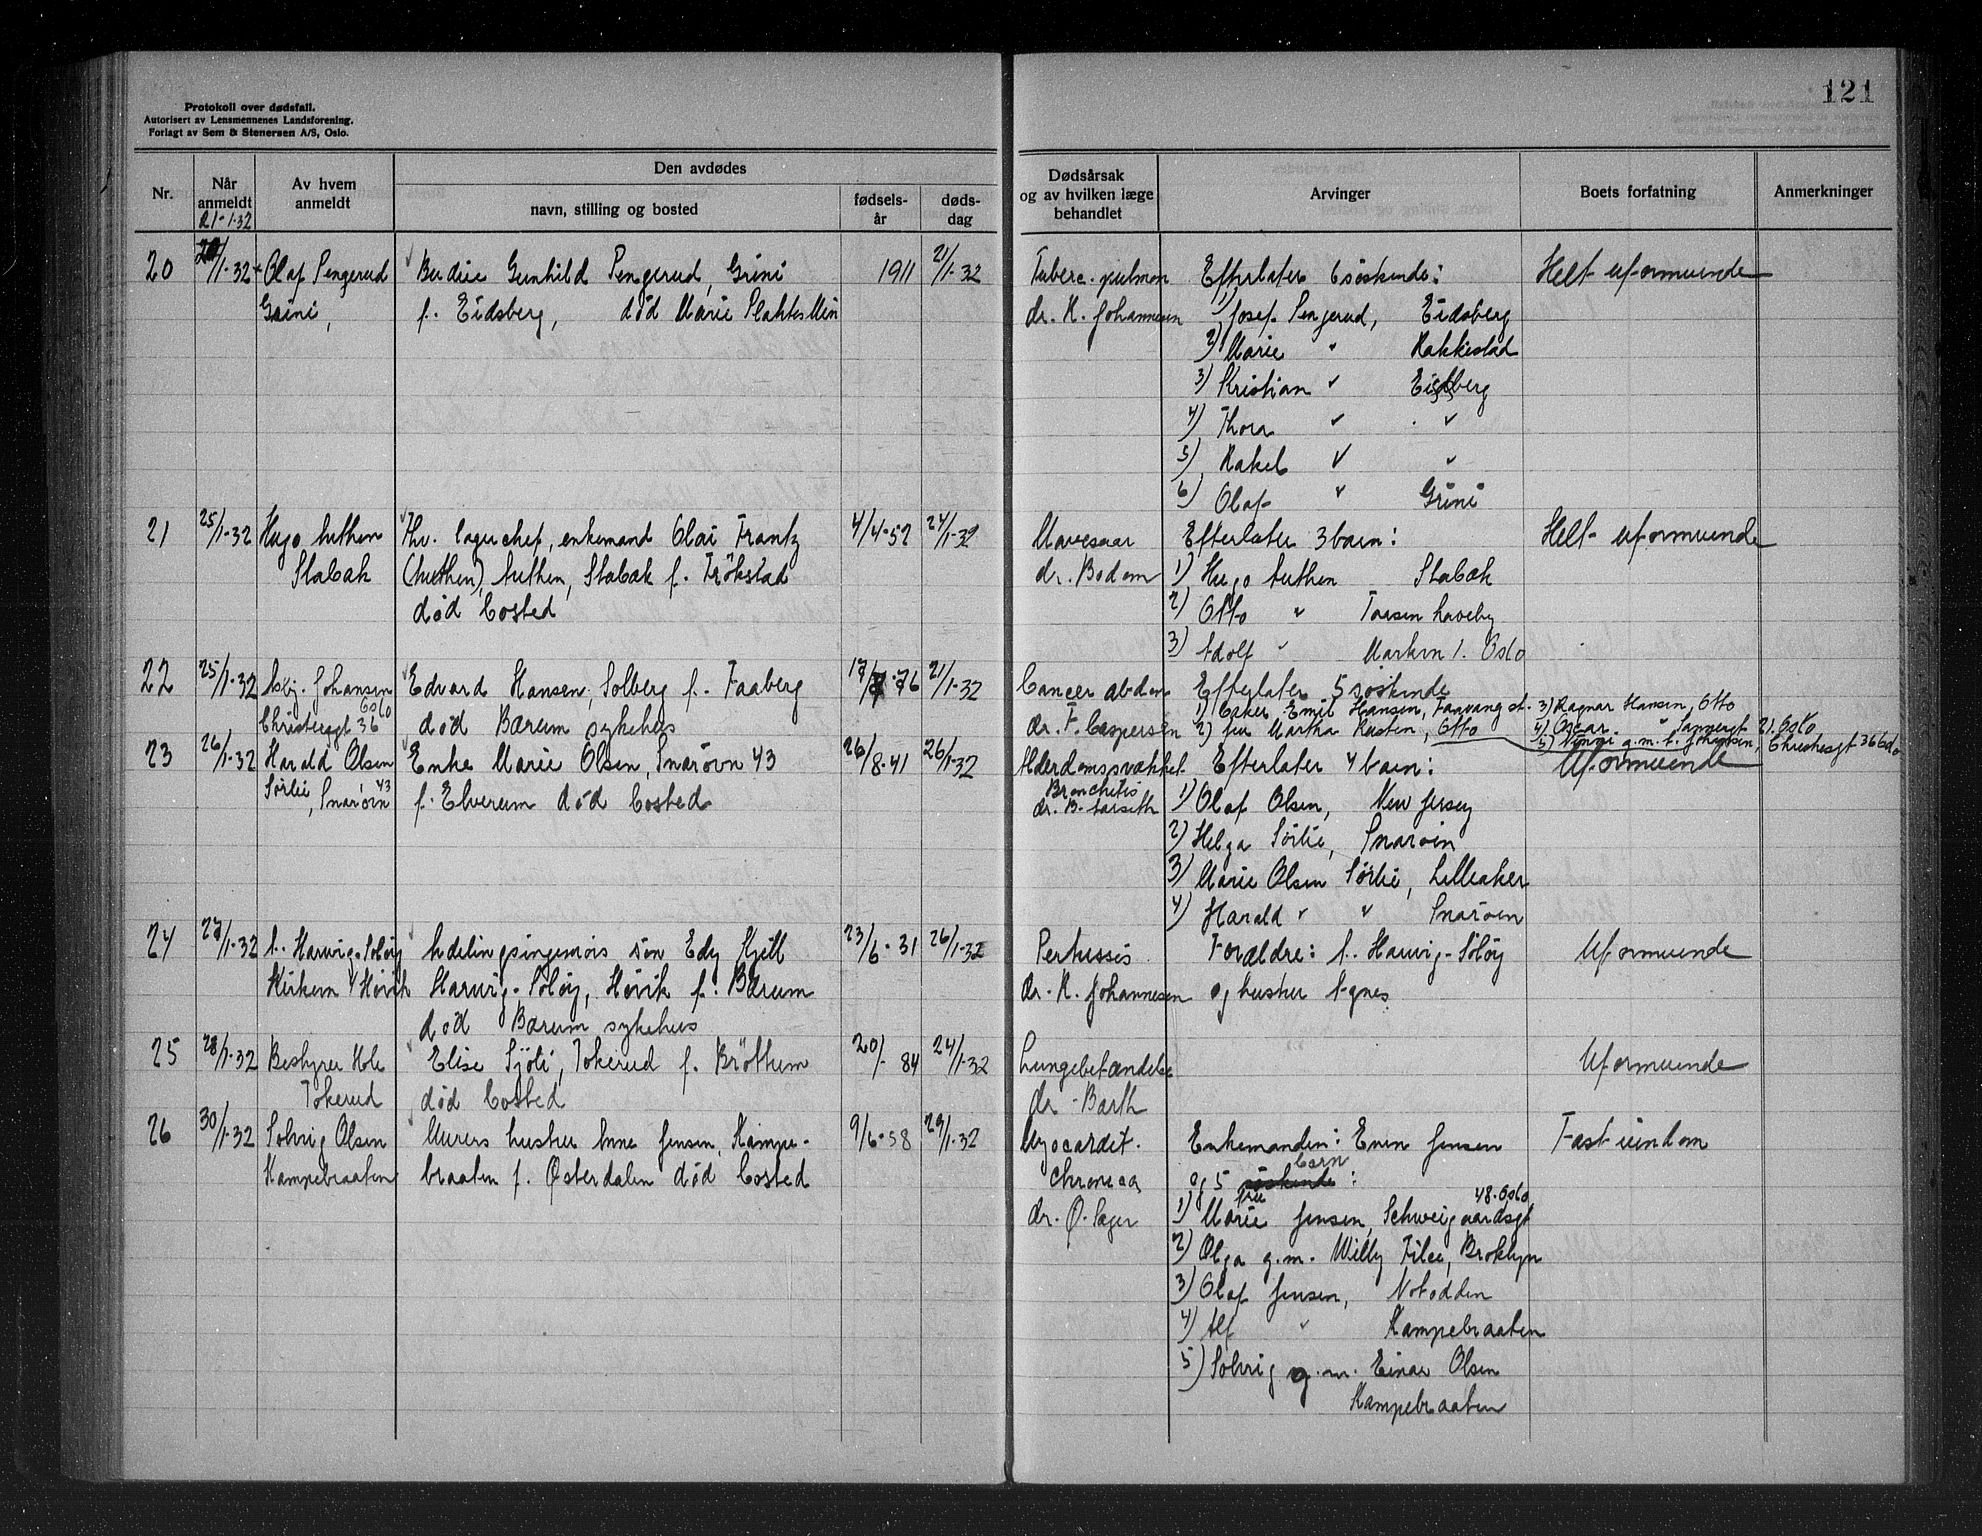 121
Protokoll over dødsfall.
Autorisert av Lensmennenes Landsforening.
Forlagt av Sem & Stenersen A/S, Oslo.
Nr.
Når anmeldt
Av hvem anmeldt
Den avdødes
navn, stilling og bosted
fødsels-år
døds-dag
Dødsårsak og av hvilken læge behandlet
Arvinger
Boets forfatning
Anmerkninger
21-1-32
20 /1-32 Olaf Pengerud Gunhild Pengerud, Grini 1911 21/1-32 Tuberc. pulmon Efterlater 6 söskende: Helt uformuende
Grini, f. Eidsberg, död Marie Plahtes Min dr. K. Johannesen 1) Josef Pengerud, Eidsberg
2) Marie " Rakkestad
3) Kristian " Eidsberg
4) Thora " "
5) Rakel " "
6) Olaf " Grini
21 25/1-32 Hugo Authen Fhv. lagerchef, enkemand Olai Frantz 4/4-52 24/1-32 Mavesaar Efterlater 3 barn: Helt uformuende
Stabæk (Authen), Authen, Stabæk f. Trökstad dr. Bodom 1) Hugo Authen Stabæk
död bosted 2) Otto " haveby
3) Adolf " Oslo
22 25/1-32 Asbj. Johansen Edvard Hansen, Solberg f. Faaberg 17/ -76 21/1-32 Cancer abdom Efterlater 5 söskende
Oslo
Christiesgt 36 död Bærum sykehus dr. F. Caspersen 1) Emil Hansen, Faavang st. 3) Ragnar Hansen, Otto
2) fru Martha Rusten, Otto 4) Oscar " 21. Oslo
5) g.m. A. Johansen, Christiesgt 36 Oslo
23 26/1-32 Harald Olsen Enke Marie Olsen, Snaröyn 43 26/8-41 26/1-32 Alderdomssvækket Efterlater 4 barn: Uformuende
Sörlie, Snaröyn 43 f. Elverum död bosted Bronchitis 1) Olaf Olsen, New Jersey
dr. B. Aarseth
2) Helga Sörlie, Snaröen
3) Marie Olsen Sörlie, Lilleaker
4) Harald " " Snaröen
24 27/1-32 A. Harwig-Solöy Avdelingsingeniörs sön Edy Kjell 23/6-31 26/1-32 Pertussis Forældre: A. Harwig-Solöy Uformuende
Hövik Harwig-Solöy, Hövik f. Bærum dr. K. Johannesen og hustru Agnes
död Bærum sykehus
25 28/1-32 Bestyrer Hole Elise Sjöli, Tokerud f. Bröttum 20/- 84 24/1-32 Lungebetændelse Uformuende
Tokerud död bosted dr. Barth
26 30/1-32 Solvig Olsen Murers hustru Anne Jensen, Kampe- 9/6-58 29/1-32 Myocardit. Enkemanden: Even Jensen Fast eiendom
Kampebraaten braaten f. Østerdalen död bosted chronica og 5 söskende barn:
dr. Ø. Sæger 1) fru Marie Jensen, Schweigaardsgt 48. Oslo
2) Olga g.m. Willy Filee, Broklyn
3) Olaf Jensen, Notodden
4) Alf " Kampebraaten
5) Solvig g.m. Einar Olsen
Kampebraaten